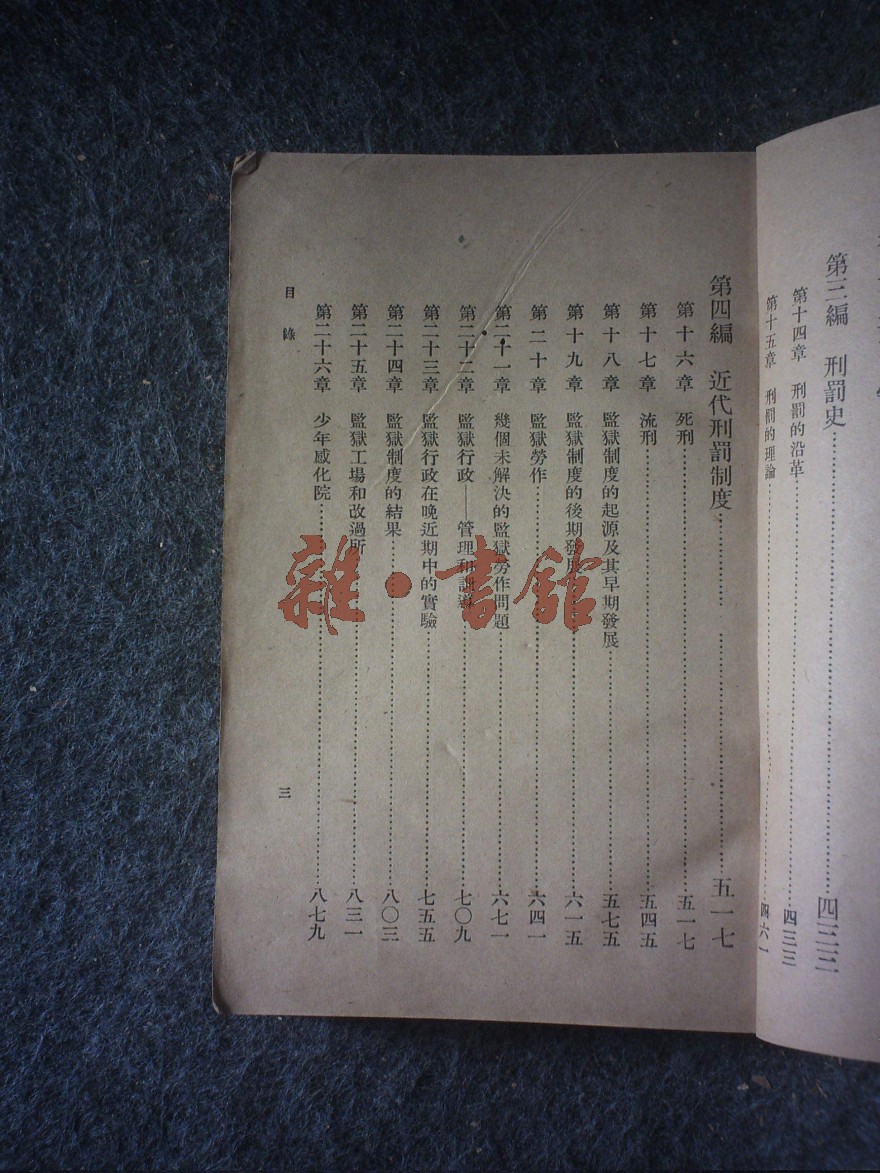 第三編　刑罰史…………四三三
第十四章　刑罰的沿革…………四三三
第十五章　刑罰的理論…………四六一
第四編　近代刑罰制度…………五一七
第十六章　死刑…………五一七
第十七章　流刑…………五四五
第十八章　監獄制度的起源及其早期發展…………五七五
第十九章　監獄制度的後期發展…………六一五
第二十章　監獄勞作…………六四一
第二十一章　幾個未解決的監獄勞作問題…………六七一
第二十二章　監獄行政——管理和訓導…………七〇九
第二十三章　監獄行政在晚近期中的實驗…………七五五
第二十四章　監獄制度的結果…………八〇三
第二十五章　監獄工場和改過所…………八三一
第二十六章　少年感化院…………八七九
目錄
三
雜·書館